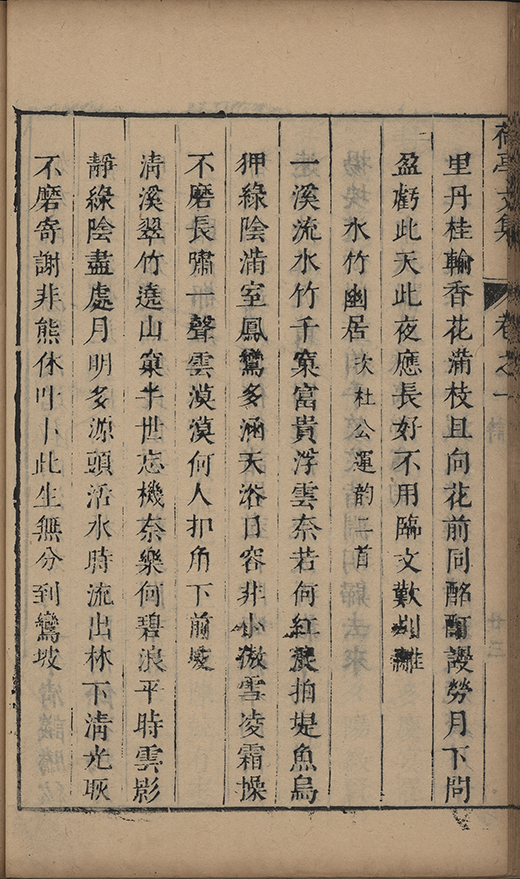 荷亭文集 卷之一
里丹桂輸香花滿枝且向花前同酩酊謾勞月下問
盈虧此天此夜應長好不用臨文歎別離
水竹幽居次杜公運韵二首
一溪流水竹千窠富貴浮雲奈若何紅蓼拍堤魚鳥
狎綠陰滿室鳳鸞多涵天浴日容非小傲雪凌霜操
不磨長嘯一聲雲漠漠何人扣角下前坡
清溪翠竹遶山窠半世忘機奈樂何碧浪平時雲影
靜綠陰盡處月明多源頭活水時流出林下清光耿
不磨寄謝非熊休叶卜此生無分到鸞坡